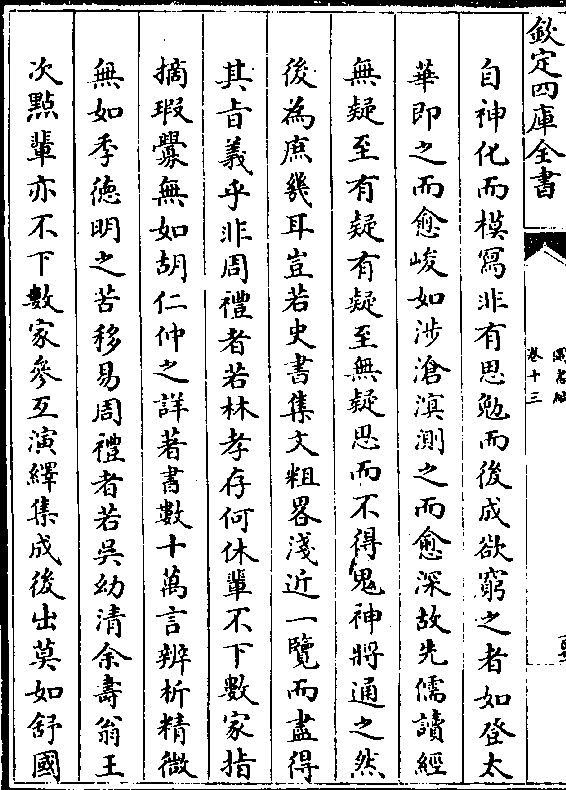 欽定四庫全書
卷十三
自神化而模寫非有思勉而後成欲窮之者如登太
華即之而愈峻如涉滄溟測之而愈深故先儒讀經
無疑至有疑有疑至無疑思而不得鬼神將通之然
後為庶幾耳豈若史書集文粗畧淺近一覽而盡得
其旨義乎非周禮者若林孝存何休輩不下數家指
摘瑕釁無如胡仁仲之詳著書數十萬言辨析精微
無如季德明之苦移易周禮者若吳幼清余壽翁王
次點輩亦不下數家參互演繹集成後出莫如舒國